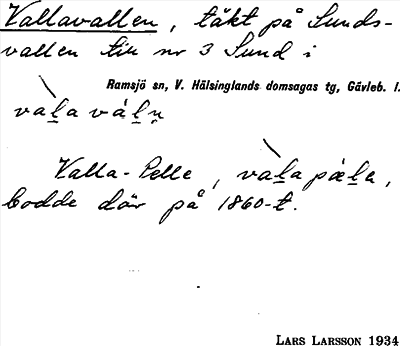 Vallavallen, täkt på Sunds-
vallen till nr 3 Sund i
Ramsjö sn, V. Hälsinglands domsagas tg, Gävleb. l.
va̱ḻa váḻṇ
Valla-Pelle, vaḻa pǽḻa,
bodde där på 1860-t.
LARS LARSSON 1934